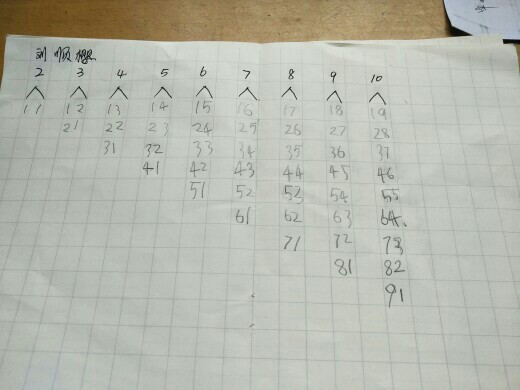 刘顺想
2 3 4 5 6 7 8 9 10
11 12 13 14 15 16 17 18 19
21 22 23 24 25 26 27 28
31 32 33 34 35 36 37
41 42 43 44 45 46
51 52 53 54 55
61 62 63 64
71 72 73
81 82
91